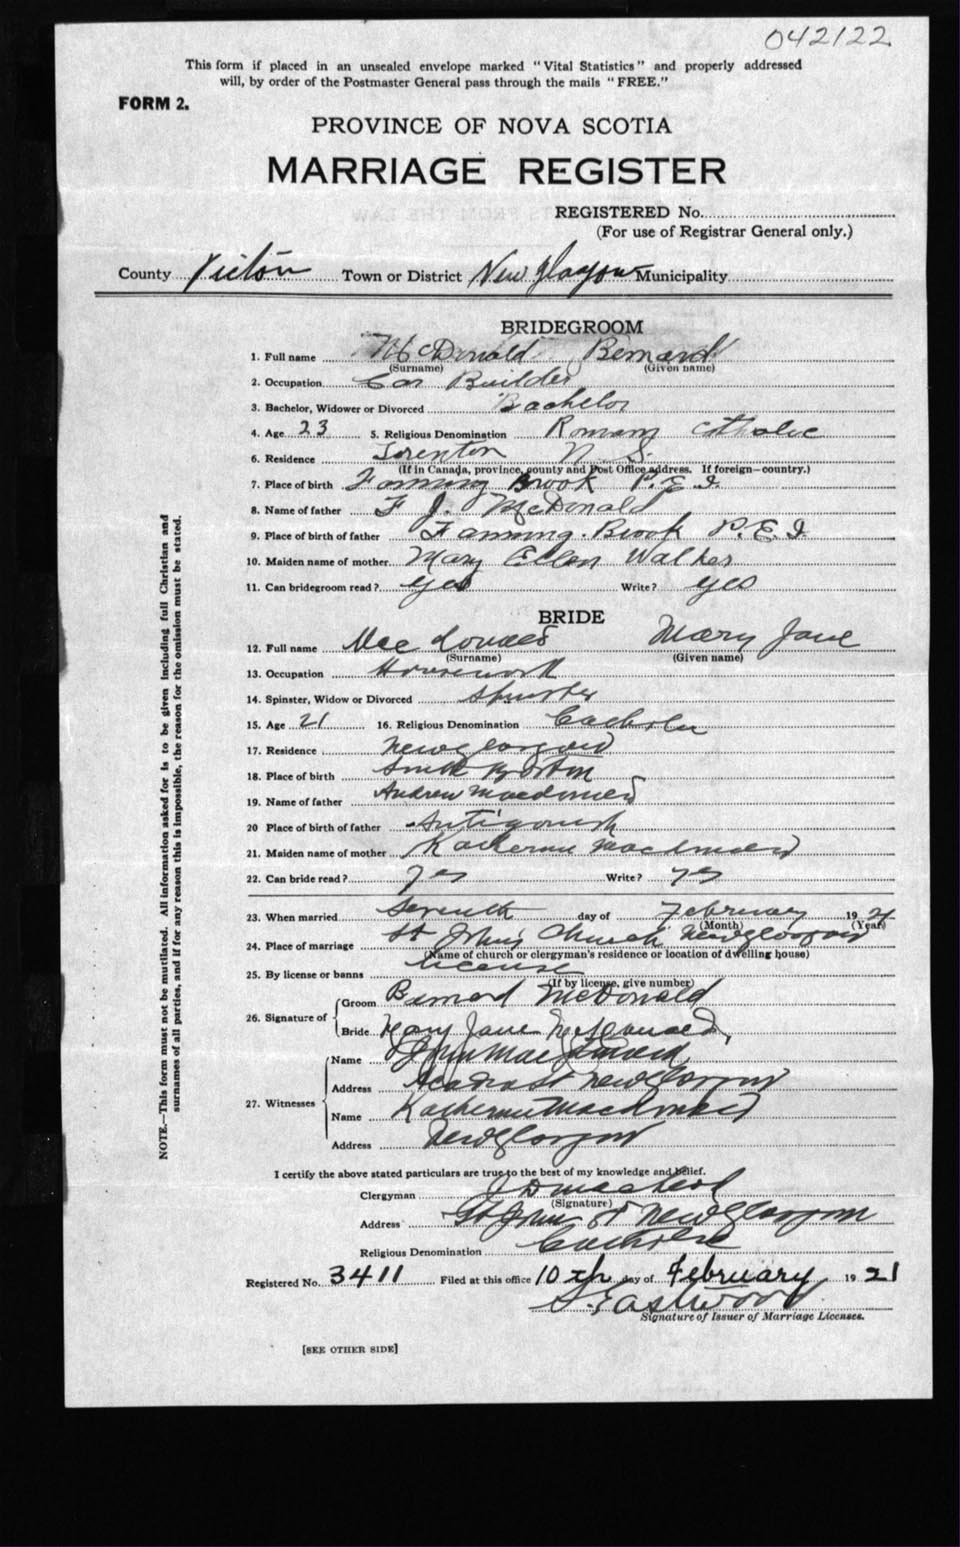 042122
This form if placed in an unsealed envelope marked "Vital Statistics" and properly addressed
will, by order of the Postmaster General pass through the mails "FREE."
FORM 2.
PROVINCE OF NOVA SCOTIA
MARRIAGE REGISTER
REGISTERED No.
(For use of Registrar General only.)
County Pictou Town or District New Glasgow Municipality
BRIDEGROOM
1. Full name McDonald Bernard
(Surname) (Given name)
2. Occupation Car Builder
3. Bachelor, Widower or Divorced Bachelor
4. Age 23 5. Religious Denomination Roman Catholic
6. Residence Trenton N. S.
(If in Canada, province, county and Post Office address. If foreign—country.)
7. Place of birth Fanning Brook P.E.I.
8. Name of father F J. McDonald
9. Place of birth of father Fanning Brook P.E.I
10. Maiden name of mother Mary Ellen Walker
11. Can bridegroom read? yes Write? yes
BRIDE
12. Full name Mary Jane
(Surname) (Given name)
13. Occupation Housework
14. Spinster, Widow or Divorced Spinster
15. Age 21 16. Religious Denomination Catholic
17. Residence New Glasgow
18. Place of birth South Boston
19. Name of father Andrew Macdonald
20 Place of birth of father Antigonish
21. Maiden name of mother Katherine Macdonald
22. Can bride read? yes Write? yes
23. When married Seventh day of February 1921
(Month) (Year)
24. Place of marriage St John's Church New Glasgow
(Name of church or clergyman's residence or location of dwelling house)
25. By license or banns License
(If by license, give number)
26. Signature of Groom Bernard McDonald
Bride Mary Jane McDonald
27. Witnesses Name John MacDonald
Address New Glasgow
Name Katherine Macdonald
Address New Glasgow
I certify the above stated particulars are true to the best of my knowledge and belief.
Clergyman J D MacLeod
(Signature)
Address St John St New Glasgow
Religious Denomination Catholic
Registered No. 3411 Filed at this office 10th day of February 1921
S. Eastwood
Signature of Issuer of Marriage Licenses.
[SEE OTHER SIDE]
NOTE.—This form must not be mutilated. All information asked for is to be given including full Christian and
surnames of all parties, and if for any reason this is impossible, the reason for the omission must be stated.